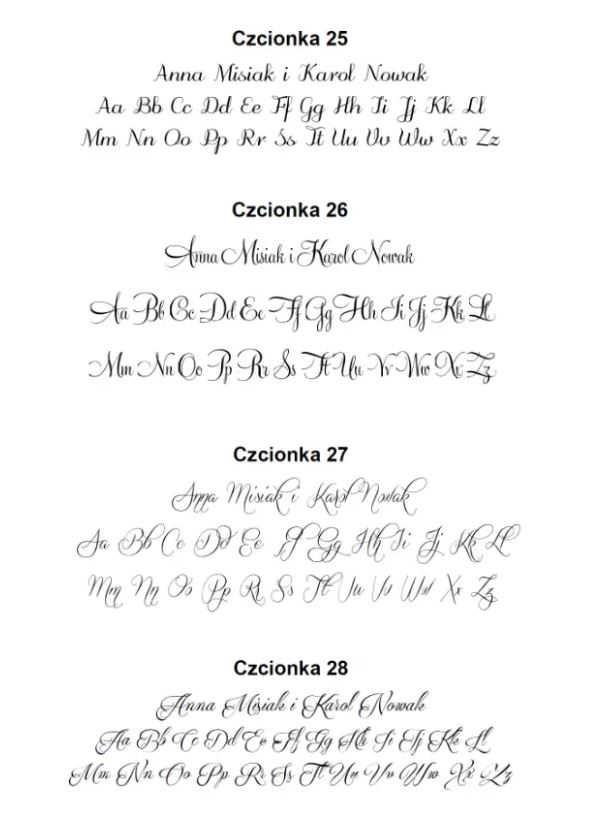 Czcionka 25
Anna Misiak i Karol Nowak
Aa Bb Cc Dd Ee Ff Gg Hh Ii Jj Kk Ll
Mm Nn Oo Pp Rr Ss Tt Uu Vv Ww Xx Zz
Czcionka 26
Anna Misiak i Karol Nowak
Aa Bb Cc Dd Ee Ff Gg Hh Ii Jj Kk Ll
Mm Nn Oo Pp Rr Ss Tt Uu Vv Ww Xx Zz
Czcionka 27
Anna Misiak i Karol Nowak
Aa Bb Cc Dd Ee Ff Gg Hh Ii Jj Kk Ll
Mm Nn Oo Pp Rr Ss Tt Uu Vv Ww Xx Zz
Czcionka 28
Anna Misiak i Karol Nowak
Aa Bb Cc Dd Ee Ff Gg Hh Ii Jj Kk Ll
Mm Nn Oo Pp Rr Ss Tt Uu Vv Ww Xx Zz